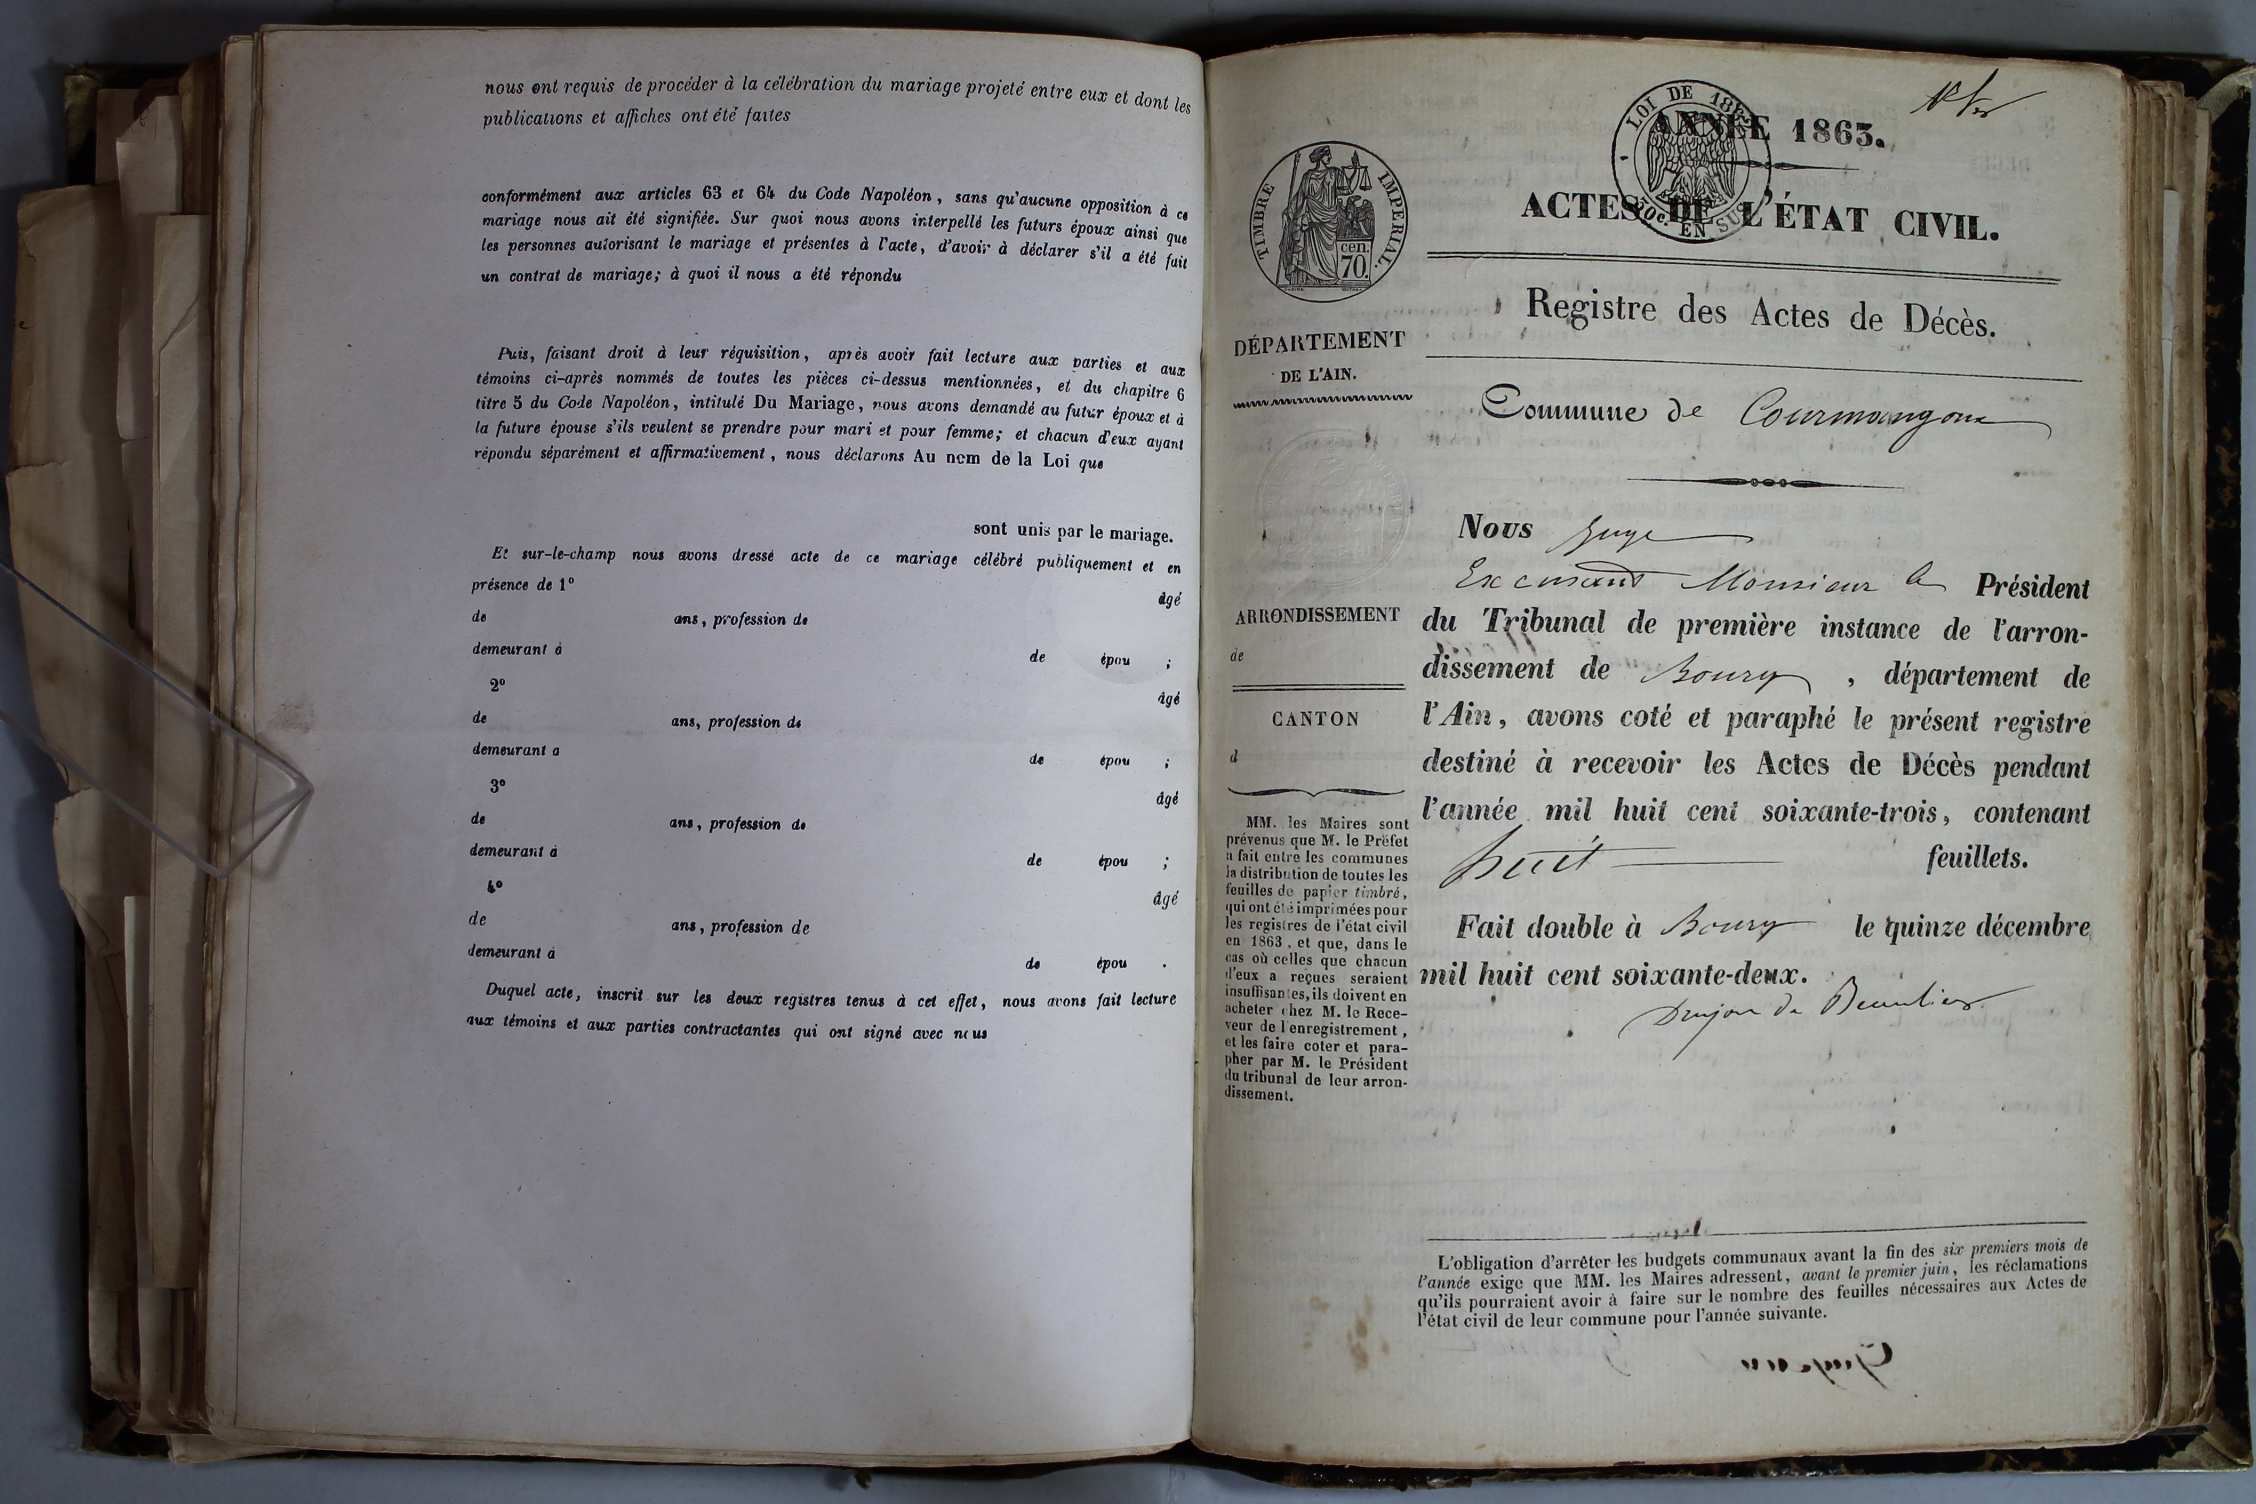 nous ont requis de procéder à la célébration du mariage projeté entre eux et dont les
publications et affiches ont été faites
conformément aux articles 63 et 64 du Code Napoléon, sans qu'aucune opposition à ce
mariage nous ait été signifiée. Sur quoi nous avons interpellé les futurs époux ainsi que
les personnes autorisant le mariage et présentes à l'acte, d'avoir à déclarer s'il a été fait
un contrat de mariage; à quoi il nous a été répondu
Puis, faisant droit à leur réquisition, après avoir fait lecture aux parties et aux
témoins ci-après nommés de toutes les pièces ci-dessus mentionnées, et du chapitre 6
titre 5 du Code Napoléon, intitulé Du Mariage, nous avons demandé au futur époux et à
la future épouse s'ils veulent se prendre pour mari et pour femme; et chacun d'eux ayant
répondu séparément et affirmativement, nous déclarons Au nom de la Loi que
sont unis par le mariage.
Et sur-le-champ nous avons dressé acte de ce mariage célébré publiquement et en
présence de 1º
âgé
de ans, profession de
demeurant à de épou ;
2º âgé
de ans, profession de
demeurant a de épou ;
3º âgé
de ans, profession de
demeurant à de épou ;
4º âgé
de ans, profession de
demeurant à de épou .
Duquel acte, inscrit sur les deux registres tenus à cet effet, nous avons fait lecture
aux témoins et aux parties contractantes qui ont signé avec nous
TIMBRE IMPERIAL.
cen.
70.
DÉPARTEMENT
DE L'AIN.
ARRONDISSEMENT
de
CANTON
d
MM. les Maires sont
prévenus que M. le Préfet
a fait entre les communes
la distribution de toutes les
feuilles de papier timbré,
qui ont été imprimées pour
les registres de l'état civil
en 1863, et que, dans le
cas où celles que chacun
d'eux a reçues seraient
insuffisantes, ils doivent en
acheter chez M. le Rece-
veur de l'enregistrement,
et les faire coter et para-
pher par M. le Président
du tribunal de leur arron-
dissement.
LOI DE 18
50c. EN SUS
ANNÉE 1863.
ACTES DE L'ÉTAT CIVIL.
Registre des Actes de Décès.
Commune de Courmangoux
Nous Juge
Excusant Monsieur le Président
du Tribunal de première instance de l'arron-
dissement de Bourg, département de
l'Ain, avons coté et paraphé le présent registre
destiné à recevoir les Actes de Décès pendant
l'année mil huit cent soixante-trois, contenant
huit feuillets.
Fait double à Bourg le quinze décembre
mil huit cent soixante-deux.
Dujon de Beaulieu
L'obligation d'arrêter les budgets communaux avant la fin des six premiers mois de
l'année exige que MM. les Maires adressent, avant le premier juin, les réclamations
qu'ils pourraient avoir à faire sur le nombre des feuilles nécessaires aux Actes de
l'état civil de leur commune pour l'année suivante.